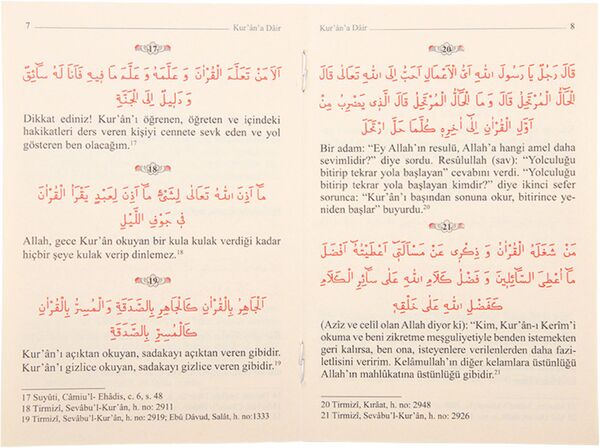 7 Kur’ân’a Dâir
17
اَلَا مَنْ تَعَلَّمَ الْقُرْاٰنَ وَ عَلَّمَهُ وَ عَلَّمَ مَا فِيهِ فَاَنَا لَهُ سَاۤئِقٌ
وَ دَلِيلٌ اِلَى الْجَنَّةِ
Dikkat ediniz! Kur’ân’ı öğrenen, öğreten ve içindeki
hakikatleri ders veren kişiyi cennete sevk eden ve yol
gösteren ben olacağım.17
18
مَاۤ اَذِنَ اللهُ تَعَالٰى لِشَيْءٍ مَاۤ اَذِنَ لِعَبْدٍ يَقْرَاُ الْقُرْاٰنَ
فِي جَوْفِ اللَّيْلِ
Allah, gece Kur’ân okuyan bir kula kulak verdiği kadar
hiçbir şeye kulak verip dinlemez.18
19
اَلْجَاهِرُ بِالْقُرْاٰنِ كَالْجَاهِرِ بِالصَّدَقَةِ وَ الْمُسِرُّ بِالْقُرْاٰنِ
كَالْمُسِرِّ بِالصَّدَقَةِ
Kur’ân’ı açıktan okuyan, sadakayı açıktan veren gibidir.
Kur’ân’ı gizlice okuyan, sadakayı gizlice veren gibidir.19
17 Suyûti, Câmiu’l- Ehâdis, c. 6, s. 48
18 Tirmizî, Sevâbu’l-Kur’ân, h. no: 2911
19 Tirmizî, Sevâbu’l-Kur’ân, h. no: 2919; Ebû Dâvud, Salât, h. no:1333
Kur’ân’a Dâir 8
20
قَالَ رَجُلٌ يَا رَسُولَ اللهِ اَيُّ الْاَعْمَالِ اَحَبُّ اِلَى اللهِ تَعَالٰى قَالَ
الْحَالُّ الْمُرْتَحِلُ قَالَ وَ مَا الْحَالُّ الْمُرْتَحِلُ قَالَ الَّذِي يَضْرِبُ مِنْ
اَوَّلِ الْقُرْاٰنِ اِلٰى اٰخِرِهِ كُلَّمَا حَلَّ ارْتَحَلَ
Bir adam: “Ey Allah’ın resulü, Allah’a hangi amel daha
sevimlidir?” diye sordu. Resûlullah (sav): “Yolculuğu
bitirip tekrar yola başlayan” cevabını verdi. “Yolculuğu
bitirip tekrar yola başlayan kimdir?” diye ikinci sefer
sorunca: “Kur’ân’ı başından sonuna okur, bitirince ye-
niden başlar” buyurdu.20
21
مَنْ شَغَلَهُ الْقُرْاٰنُ وَ ذِكْرِي عَنْ مَسْاَلَتِي اَعْطَيْتُهُ اَفْضَلَ
مَاۤ اُعْطِي السَّاۤئِلِينَ وَ فَضْلُ كَلَامِ اللهِ عَلٰى سَاۤئِرِ الْكَلَامِ
كَفَضْلِ اللهِ عَلٰى خَلْقِهِ
(Azîz ve celîl olan Allah diyor ki): “Kim, Kur’ân-ı Kerîm’i
okuma ve beni zikretme meşguliyetiyle benden istemekten
geri kalırsa, ben ona, isteyenlere verilenlerden daha fazi-
letlisini veririm. Kelâmullah’ın diğer kelamlara üstünlüğü
Allah’ın mahlukâtına üstünlüğü gibidir.21
20 Tirmizî, Kırâat, h. no: 2948
21 Tirmizî, Sevâbu’l-Kur’ân, h. no: 2926